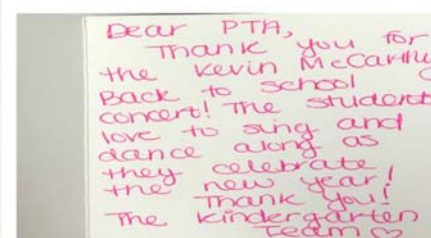 Dear PTA,
Thank you for
the Kevin McCarthy
Back to school
concert! The students
love to sing and
dance along as
they celebrate
the new year!
Thank you!
The Kindergarten
Team ♡